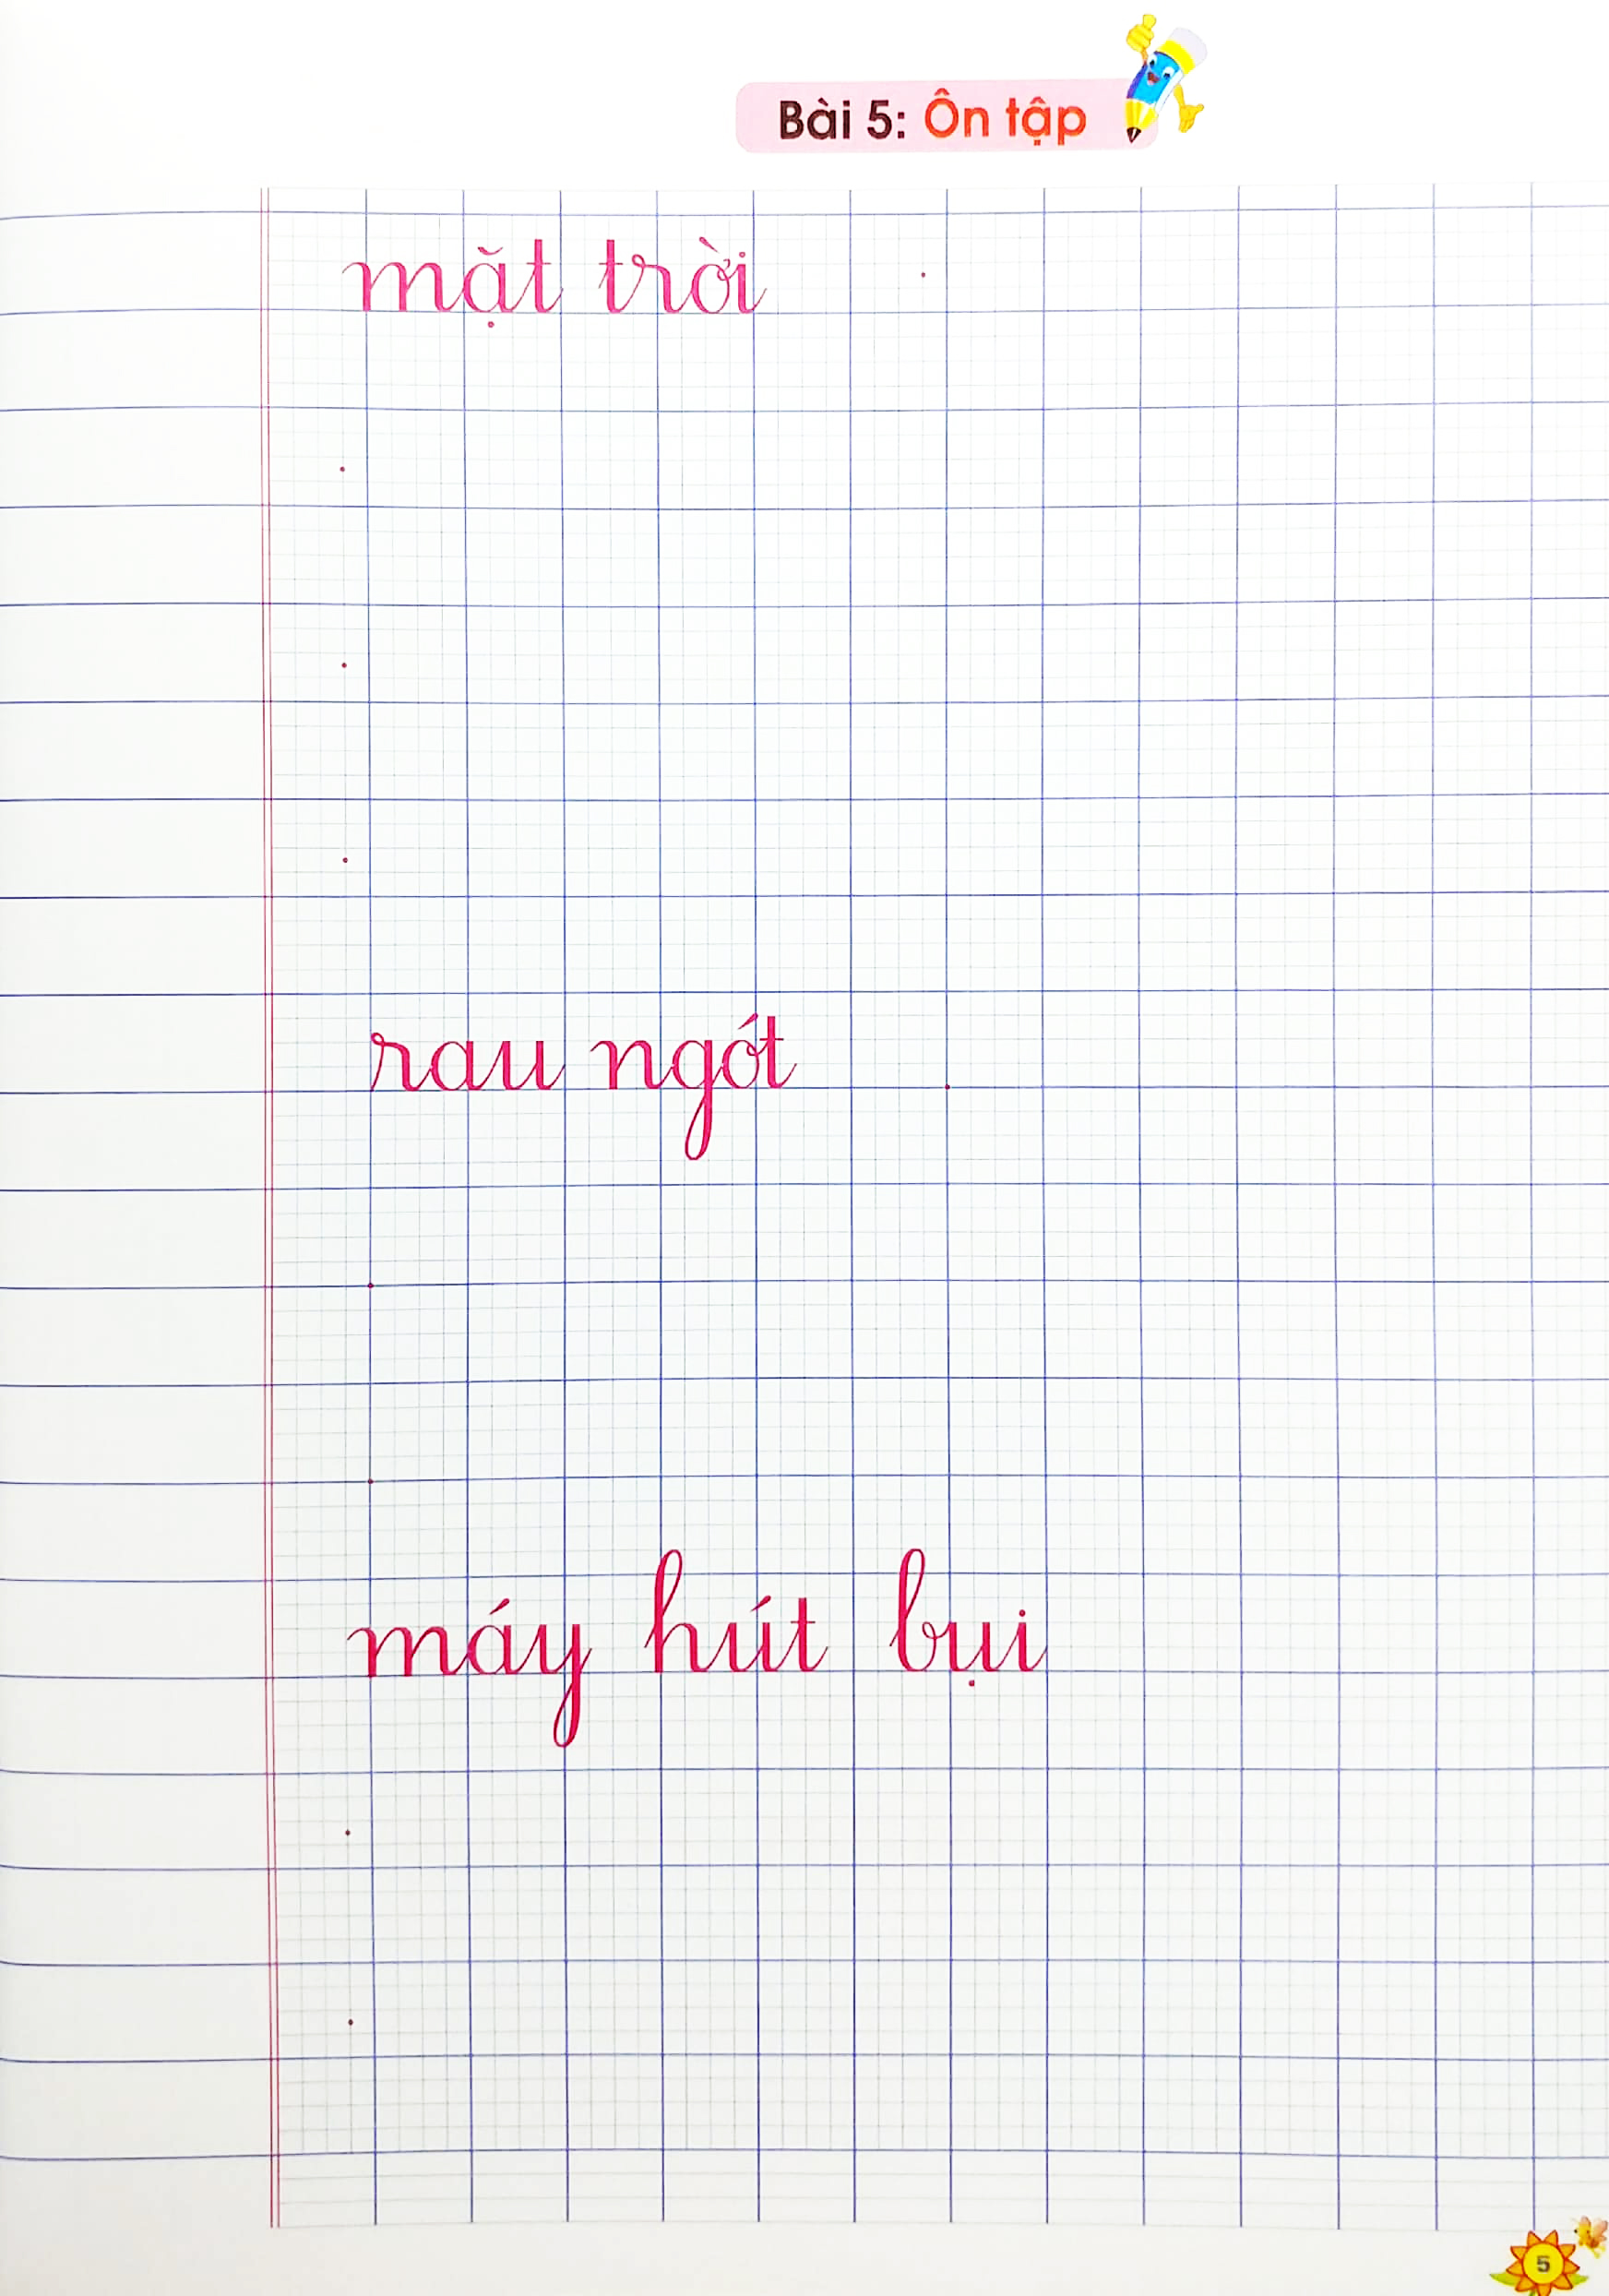 Bài 5: Ôn tập
mặt trời
rau ngót
máy hút bụi
5